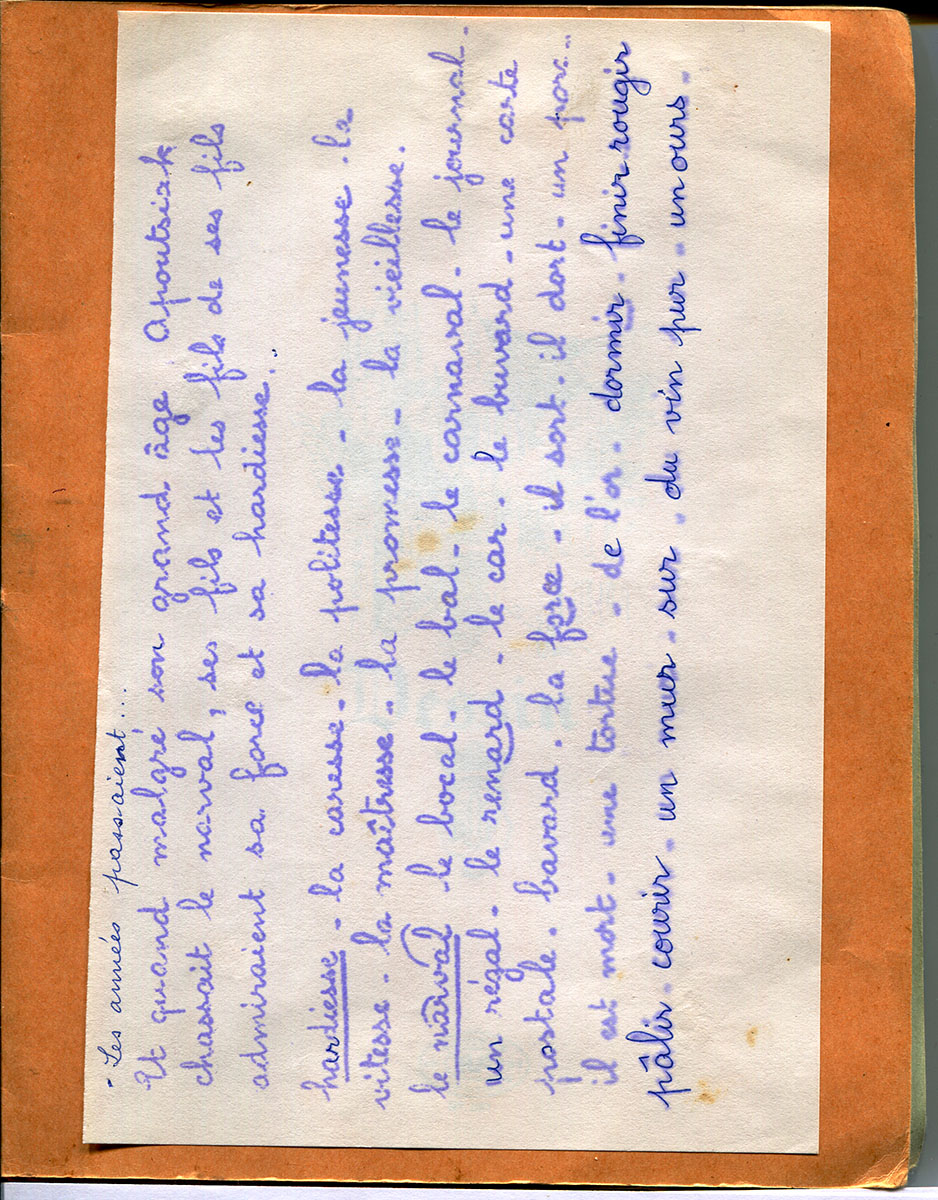 - Les années passaient...
Et quand malgré son grand âge Apoutsiak
chassait le narval, ses fils et les fils de ses fils
admiraient sa force et sa hardiesse..
hardiesse - la caresse - la politesse - la jeunesse - la
vitesse - la maîtresse - la promesse - la vieillesse.
le narval le bocal - le bal - le carnaval - le journal -
un régal - le renard - le car - le buvard - une carte
postale - bavard - la force - il sort - il dort - un porc..
il est mort - une tortue - de l'or - dormir - finir rougir
pâlir - courir - un mur - sur - du vin pur - un ours -